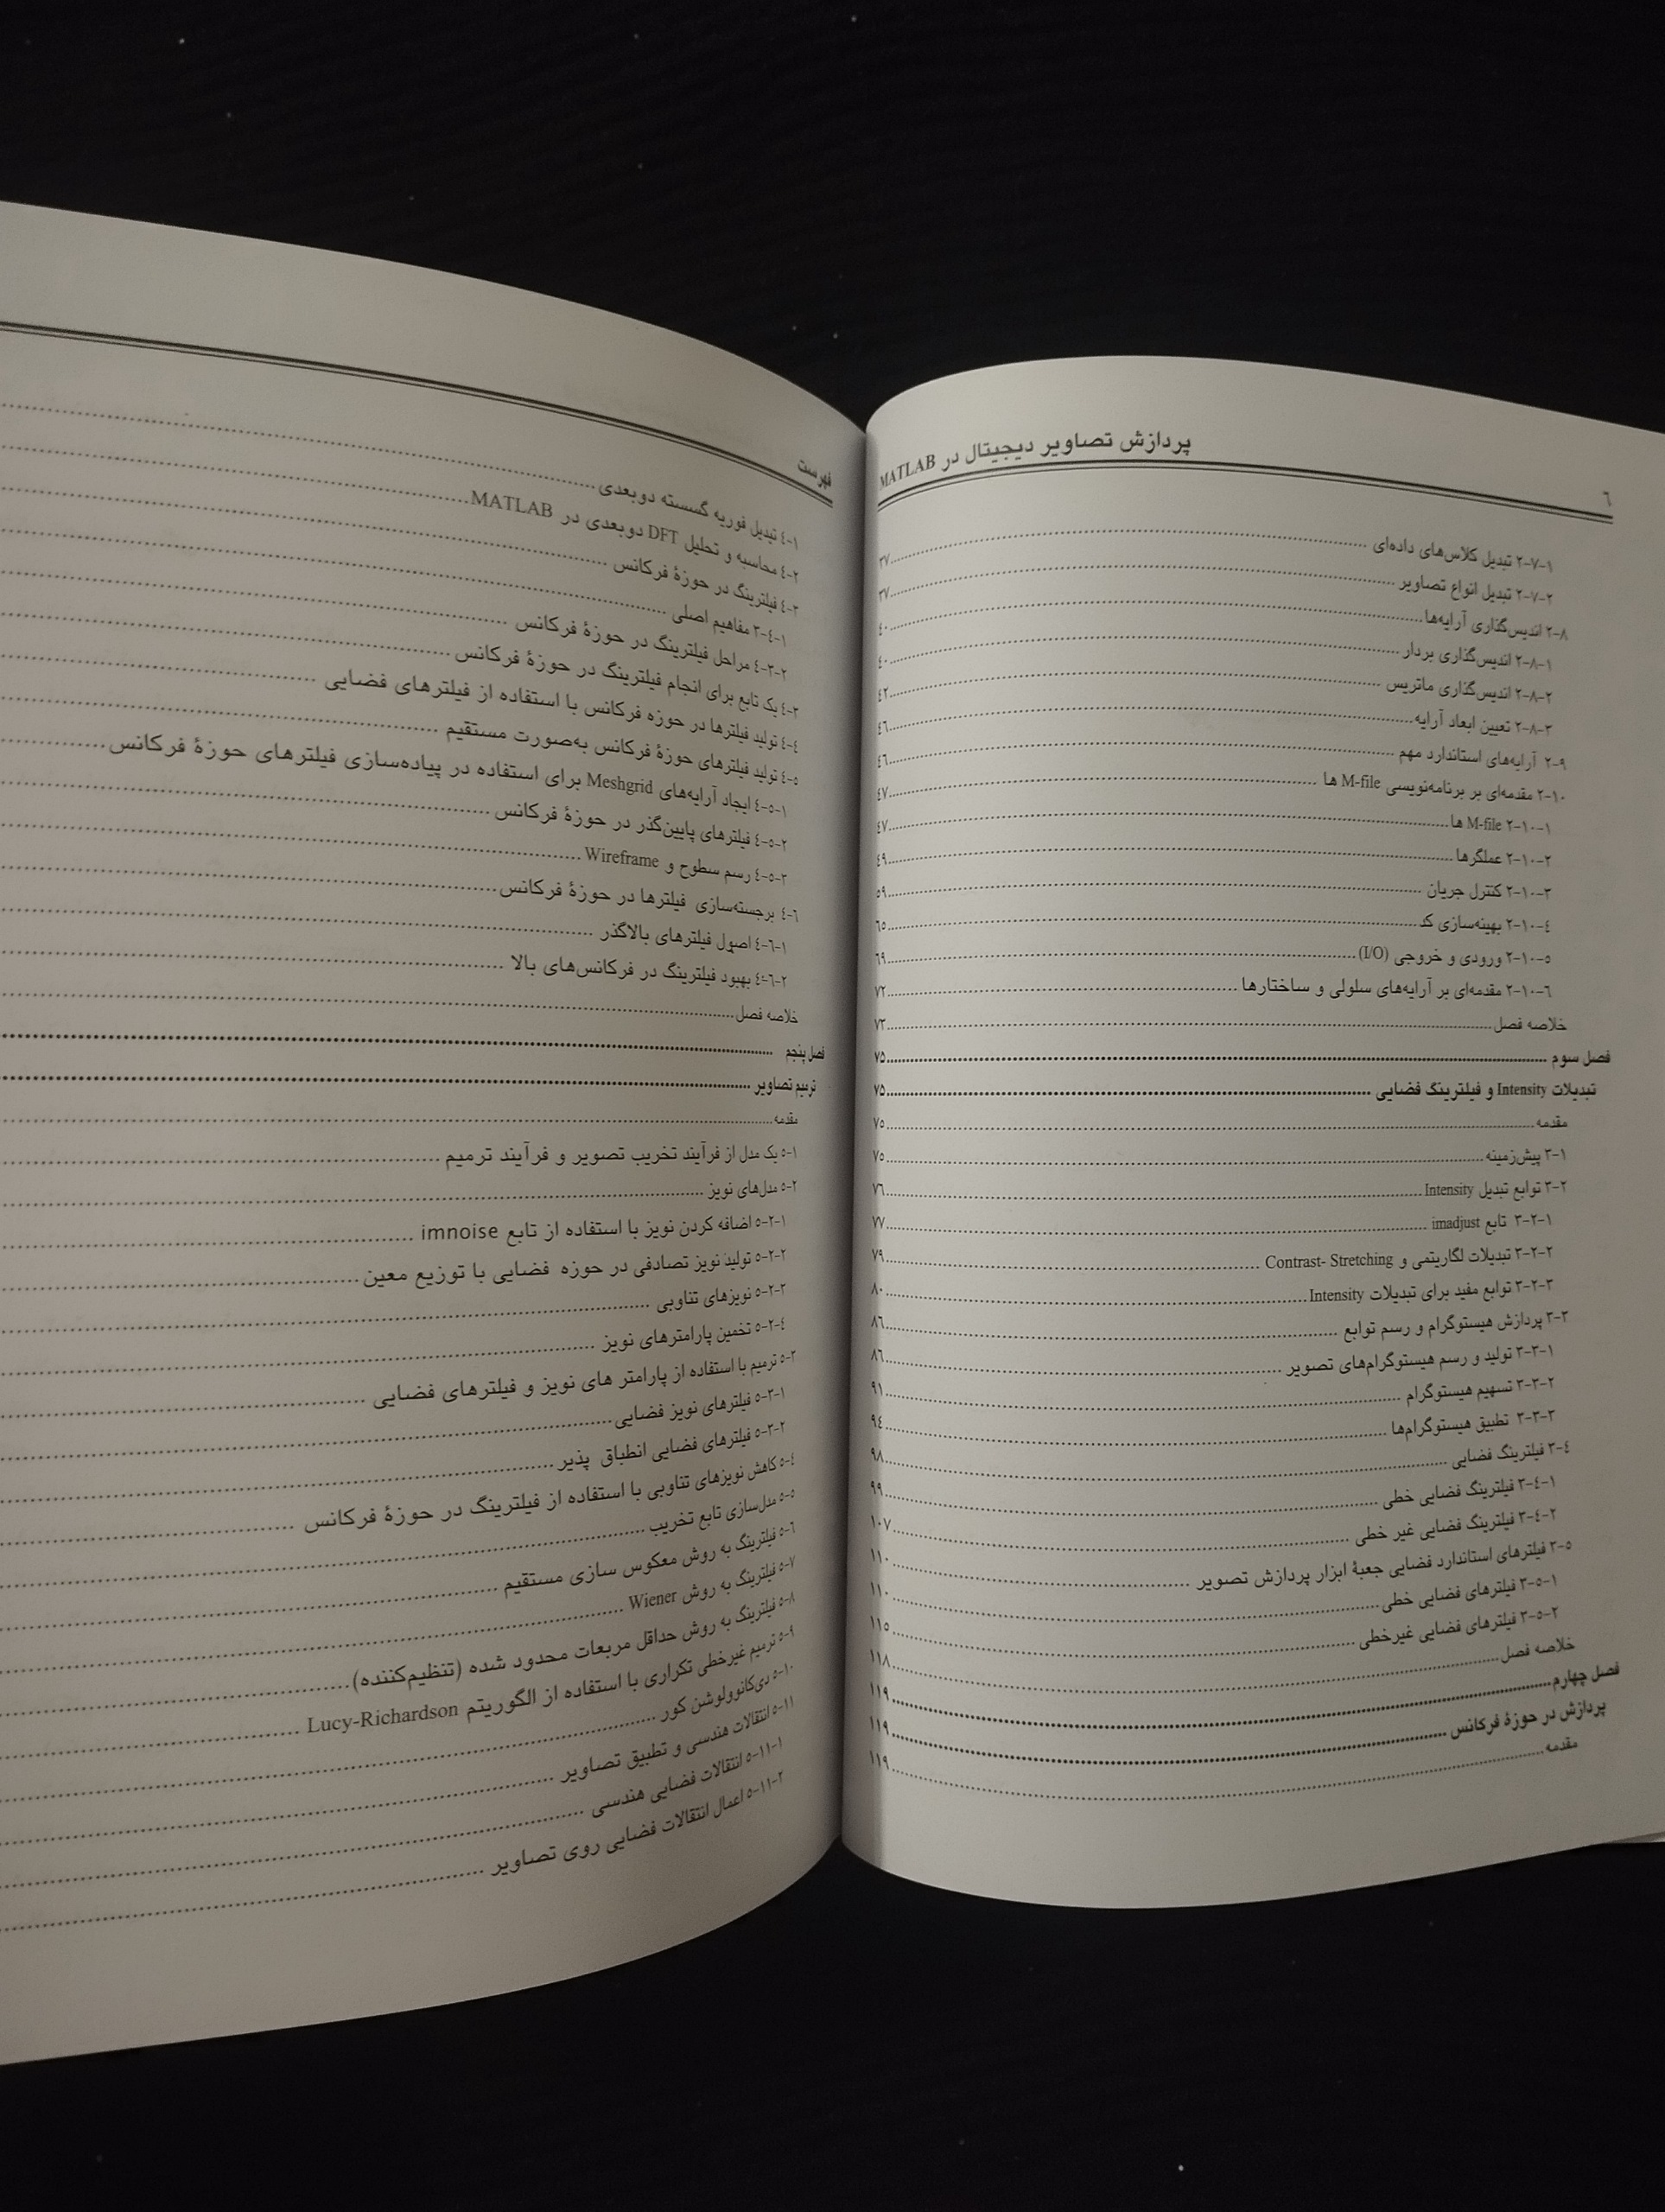 ٦
پردازش تصاویر دیجیتال در MATLAB
٢-٧-١ تبدیل کلاس‌های داده‌ای ..... ٣٧
٢-٧-٢ تبدیل انواع تصاویر ..... ٣٧
٢-٨ اندیس‌گذاری آرایه‌ها ..... ٤٠
٢-٨-١ اندیس‌گذاری بردار ..... ٤٠
٢-٨-٢ اندیس‌گذاری ماتریس ..... ٤٢
٢-٨-٣ تعیین ابعاد آرایه ..... ٤٦
٢-٩ آرایه‌های استاندارد مهم ..... ٤٦
٢-١٠ مقدمه‌ای بر برنامه‌نویسی M-file ها ..... ٤٧
٢-١٠-١ M-file ها ..... ٤٧
٢-١٠-٢ عملگرها ..... ٤٩
٢-١٠-٣ کنترل جریان ..... ٥٩
٢-١٠-٤ بهینه‌سازی کد ..... ٦٥
٢-١٠-٥ ورودی و خروجی (I/O) ..... ٦٩
٢-١٠-٦ مقدمه‌ای بر آرایه‌های سلولی و ساختارها ..... ٧٢
خلاصه فصل ..... ٧٣
فصل سوم ..... ٧٥
تبدیلات Intensity و فیلترینگ فضایی ..... ٧٥
مقدمه ..... ٧٥
٣-١ پیش‌زمینه ..... ٧٥
٣-٢ توابع تبدیل Intensity ..... ٧٦
٣-٢-١ تابع imadjust ..... ٧٧
٣-٢-٢ تبدیلات لگاریتمی و Contrast- Stretching ..... ٧٩
٣-٢-٣ توابع مفید برای تبدیلات Intensity ..... ٨٠
٣-٣ پردازش هیستوگرام و رسم توابع ..... ٨٦
٣-٣-١ تولید و رسم هیستوگرام‌های تصویر ..... ٨٦
٣-٣-٢ تسهیم هیستوگرام ..... ٩١
٣-٣-٣ تطبیق هیستوگرام‌ها ..... ٩٤
٣-٤ فیلترینگ فضایی ..... ٩٨
٣-٤-١ فیلترینگ فضایی خطی ..... ٩٩
٣-٤-٢ فیلترینگ فضایی غیر خطی ..... ١٠٧
٣-٥ فیلترهای استاندارد فضایی جعبهٔ ابزار پردازش تصویر ..... ١١٠
٣-٥-١ فیلترهای فضایی خطی ..... ١١٠
٣-٥-٢ فیلترهای فضایی غیرخطی ..... ١١٥
خلاصه فصل ..... ١١٨
فصل چهارم ..... ١١٩
پردازش در حوزهٔ فرکانس ..... ١١٩
مقدمه ..... ١١٩
فهرست
٤-١ تبدیل فوریه گسسته دوبعدی .....
٤-٢ محاسبه و تحلیل DFT دوبعدی در MATLAB .....
٤-٣ فیلترینگ در حوزهٔ فرکانس .....
٣-٤-١ مفاهیم اصلی .....
٤-٣-٢ مراحل فیلترینگ در حوزهٔ فرکانس .....
٤-٣ یک تابع برای انجام فیلترینگ در حوزهٔ فرکانس .....
٤-٤ تولید فیلترها در حوزه فرکانس با استفاده از فیلترهای فضایی .....
٤-٥ تولید فیلترهای حوزهٔ فرکانس به‌صورت مستقیم .....
٤-٥-١ ایجاد آرایه‌های Meshgrid برای استفاده در پیاده‌سازی فیلترهای حوزهٔ فرکانس .....
٤-٥-٢ فیلترهای پایین‌گذر در حوزهٔ فرکانس .....
٤-٥-٣ رسم سطوح و Wireframe .....
٤-٦ برجسته‌سازی فیلترها در حوزهٔ فرکانس .....
٤-٦-١ اصول فیلترهای بالاگذر .....
٤-٦-٢ بهبود فیلترینگ در فرکانس‌های بالا .....
خلاصه فصل .....
فصل پنجم .....
ترمیم تصاویر .....
مقدمه .....
٥-١ یک مدل از فرآیند تخریب تصویر و فرآیند ترمیم .....
٥-٢ مدل‌های نویز .....
٥-٢-١ اضافه کردن نویز با استفاده از تابع imnoise .....
٥-٢-٢ تولید نویز تصادفی در حوزه فضایی با توزیع معین .....
٥-٢-٣ نویزهای تناوبی .....
٥-٢-٤ تخمین پارامترهای نویز .....
٥-٣ ترمیم با استفاده از پارامتر های نویز و فیلترهای فضایی .....
٥-٣-١ فیلترهای نویز فضایی .....
٥-٣-٢ فیلترهای فضایی انطباق پذیر .....
٥-٤ کاهش نویزهای تناوبی با استفاده از فیلترینگ در حوزهٔ فرکانس .....
٥-٥ مدل‌سازی تابع تخریب .....
٥-٦ فیلترینگ به روش معکوس سازی مستقیم .....
٥-٧ فیلترینگ به روش Wiener .....
٥-٨ فیلترینگ به روش حداقل مربعات محدود شده (تنظیم‌کننده) .....
٥-٩ ترمیم غیرخطی تکراری با استفاده از الگوریتم Lucy-Richardson .....
٥-١٠ دی‌کانوولوشن کور .....
٥-١١ انتقالات هندسی و تطبیق تصاویر .....
٥-١١-١ انتقالات فضایی هندسی .....
٥-١١-٢ اعمال انتقالات فضایی روی تصاویر .....